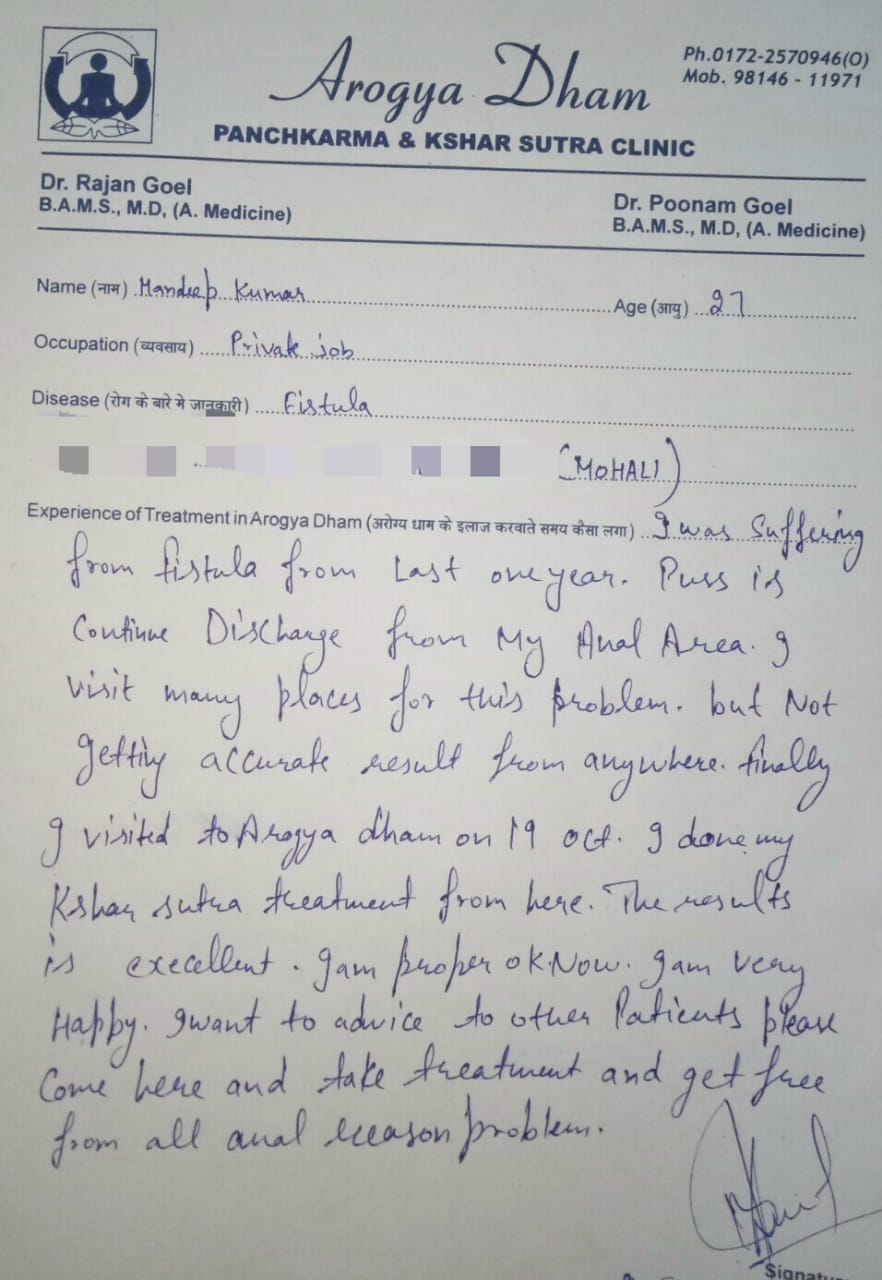 Arogya Dham
Ph.0172-2570946(O)
Mob. 98146 - 11971
PANCHKARMA & KSHAR SUTRA CLINIC
Dr. Rajan Goel
B.A.M.S., M.D, (A. Medicine)
Dr. Poonam Goel
B.A.M.S., M.D, (A. Medicine)
Name (नाम) Mandeep Kumar Age (आयु) 27
Occupation (व्यवसाय) Private job
Disease (रोग के बारे मे जानकारी) Fistula
(MOHALI)
Experience of Treatment in Arogya Dham (अरोग्य धाम के इलाज करवाते समय कैसा लगा) I was Suffering
from fistula from Last one year. Puss is
Continue Discharge from My Anal Area. I
visit many places for this problem. but Not
getting accurate result from anywhere. finally
I visited to Arogya dham on 19 oct. I done my
Kshar sutra treatment from here. The results
is execellent. I am proper ok Now. I am very
Happy. I want to advice to other Patients please
Come here and take treatment and get free
from all anal reason problem.